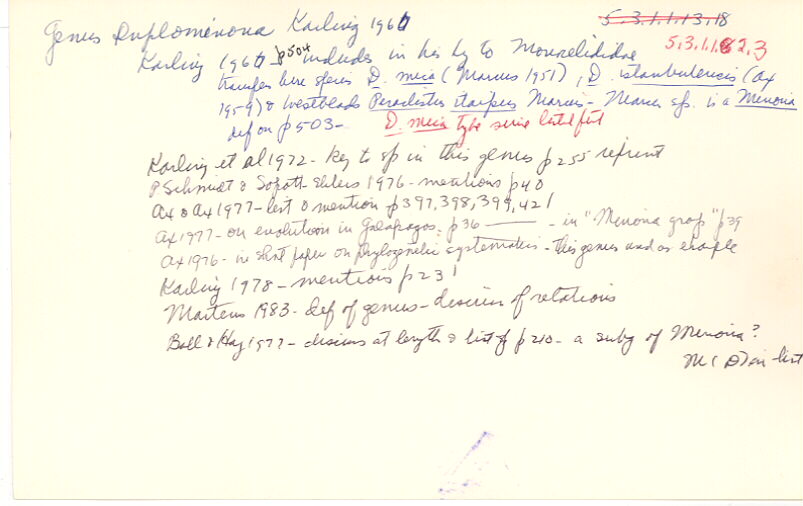 Genus Duplominona Karling 1966
5.3.1.1.13.18
5.3.1.1.2.3
Karling 1966 p504 includes in his key to Monocelididae
transfers here species D. mica (Marcus 1951), D. istanbulensis (Ax
1959) & Westblads Peraclistus itaipus Marcus - Marcus sp. is a Minona
def on p503 - D. mica type series listed first
Karling et al 1972 - key to sp in this genus p255 reprint
P Schmidt & Sopott-Ehlers 1976 - mentions p40
Ax & Ax 1977 - list & mention p397,398,399,421
Ax 1977 - on evolution in Galapagos. p36 - in "Minona group" p39
Ax 1976 - in short paper on phylogenetic systematics - this genus used as example
Karling 1978 - mentions p231
Martens 1983 - def of genus - discussion of relations
Ball & Hay 1977 - discuss at length & list of p210 - a subg of Minona?
M( D) in list